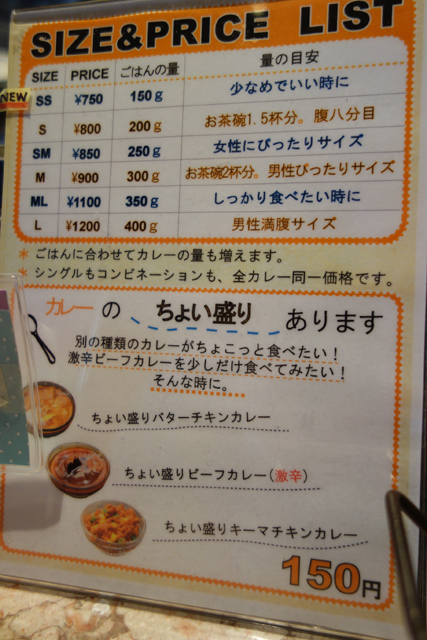 SIZE&PRICE LIST
SIZE PRICE ごはんの量 量の目安
NEW
SS ¥750 150g 少なめでいい時に
S ¥800 200g お茶碗1.5杯分。腹八分目
SM ¥850 250g 女性にぴったりサイズ
M ¥900 300g お茶碗2杯分。男性ぴったりサイズ
ML ¥1100 350g しっかり食べたい時に
L ¥1200 400g 男性満腹サイズ
＊ごはんに合わせてカレーの量も増えます。
＊シングルもコンビネーションも、全カレー同一価格です。
カレーの ちょい盛り あります
別の種類のカレーがちょこっと食べたい！
激辛ビーフカレーを少しだけ食べてみたい！
そんな時に。
ちょい盛りバターチキンカレー
ちょい盛りビーフカレー(激辛)
ちょい盛りキーマチキンカレー
150円